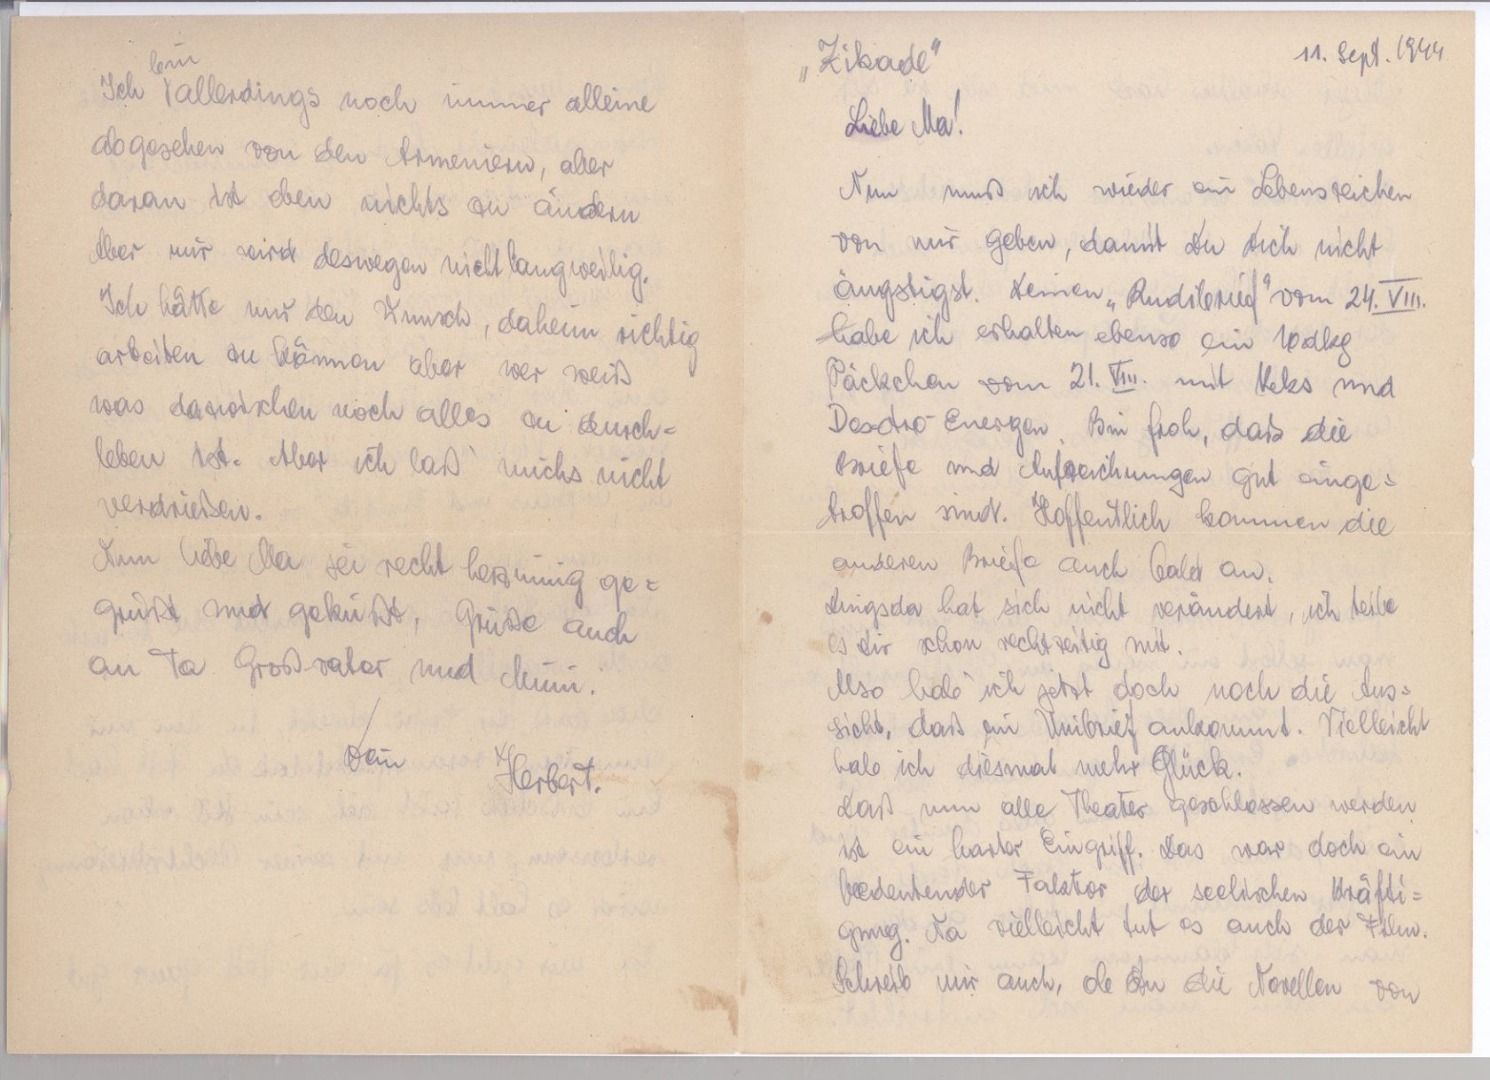 „Zikade“
11. Sept. 1944
Liebe Ma!
Nun muß ich wieder ein Lebenszeichen
von mir geben, damit Du Dich nicht
ängstigst. Deinen „Rudibrief“ vom 24. VIII.
habe ich erhalten ebenso ein 10dkg
Päckchen vom 21. VIII. mit Keks und
Dextro-Energen. Bin froh, daß die
Briefe und Aufzeichnungen gut einge=
troffen sind. Hoffentlich kommen die
anderen Briefe auch bald an.
Dingsda hat sich nicht verändert, ich teile
es dir schon rechtzeitig mit.
Also hab' ich jetzt doch noch die Aus=
sicht, daß ein Unibrief ankommt. Vielleicht
hab ich diesmal mehr Glück.
Daß nun alle Theater geschlossen werden
ist ein harter Eingriff. Das war doch ein
bedeutender Faktor der seelischen Kräfti=
gung. Na vielleicht tut es auch der Film.
Schreib mir auch, ob Du die Novellen von
Ich bin allerdings noch immer alleine
abgesehen von den Armeniern, aber
daran ist eben nichts zu ändern
Aber mir wird deswegen nicht langweilig.
Ich hätte nur den Wunsch, daheim richtig
arbeiten zu können aber wer weiß
was dazwischen noch alles zu durch=
leben ist. Aber ich laß' michs nicht
verdrießen.
Nun liebe Ma sei recht herzinnig ge=
grüßt und geküßt, Grüße auch
an Ta Großvater und Mimi.
Dein
Herbert.